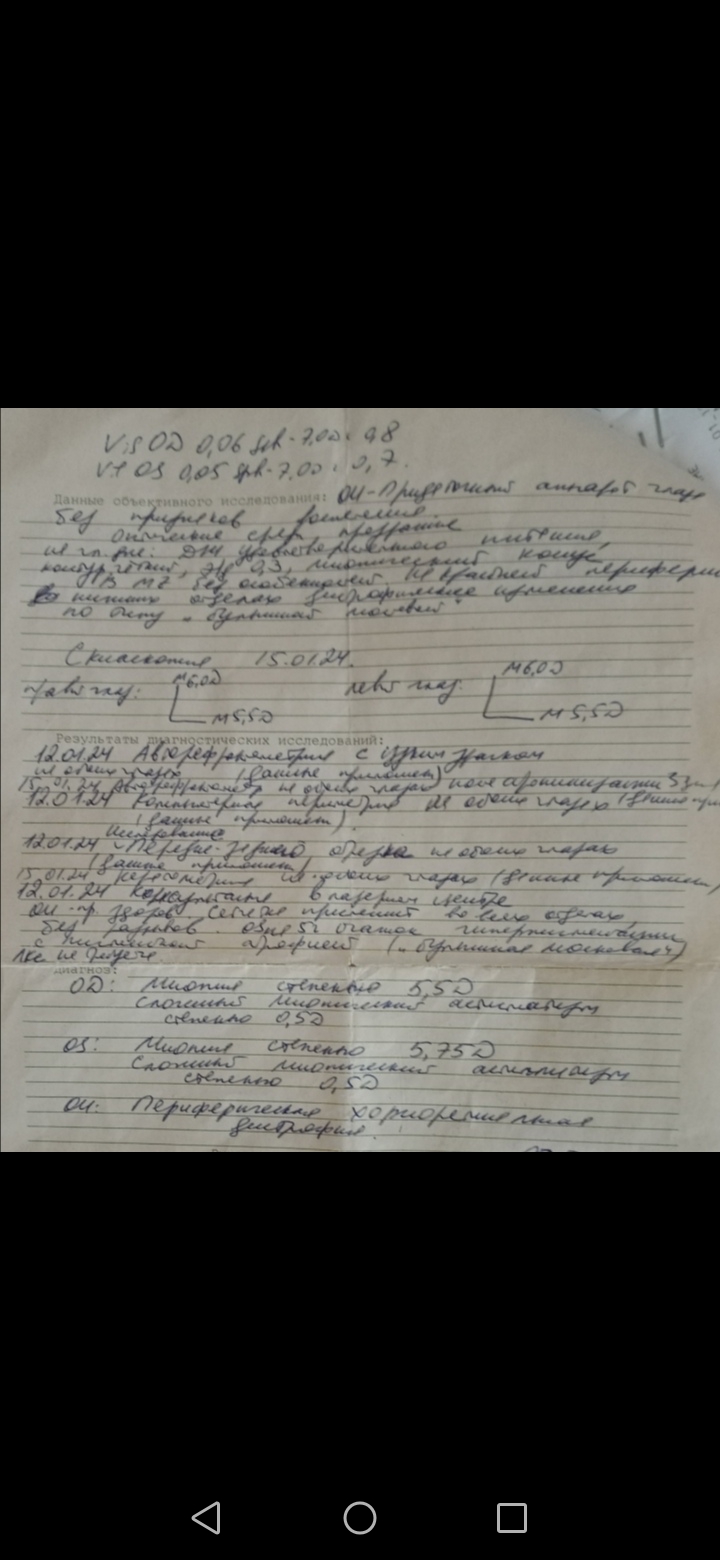 Vis OD 0,06 sph - 7,0D = 0,8
Vis OS 0,05 sph - 7,0D = 0,7.
Данные объективного исследования: ОИ - Придаточный аппарат глаз
без признаков воспаления.
Оптические среды прозрачные
на гл. дне: ДЗН удовлетворительного питания,
контур чёткий, Э/Д 0,3, миопический конус,
В МZ без особенностей. На крайней периферии
в нижних отделах дистрофические изменения
по типу "булыжной мостовой"
Скиаскопия 15.01.24.
M6,0D M6,0D
правый глаз: левый глаз:
M5,5D M5,5D
Результаты диагностических исследований:
12.01.24 Авторефрактометрия с узким зрачком
на обоих глазах (данные приложены)
15.01.24 Авторефрактометрия на обоих глазах после
12.01.24 Компьютерная периметрия на обоих глазах
(данные приложены).
Исследование
12.01.24 Передне-заднего отрезка на обоих глазах
(данные приложены)
15.01.24 на обоих глазах (данные приложены)
12.01.24 Консультация в лазерном центре
ОИ - Сетчатка прилежит во всех отделах,
без разрывов. очагов гиперпигментации
с атрофией ("булыжная мостовая")
ЛКС не требуется.
Диагноз:
OD: Миопия степенью 5,5D
Сложный миопический астигматизм
степенью 0,5D
OS: Миопия степенью 5,75D
Сложный миопический астигматизм
степенью 0,5D
ОИ: Периферическая хориоретинальная
дистрофия.